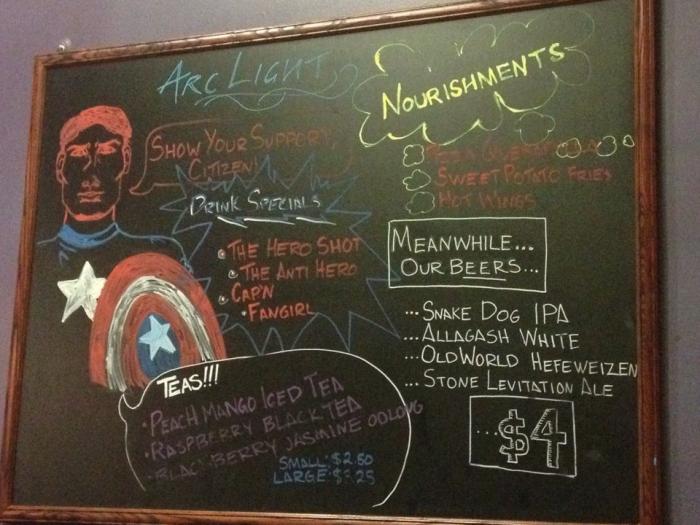 ARC LIGHT
SHOW YOUR SUPPORT,
CITIZEN!
DRINK SPECIALS
• THE HERO SHOT
• THE ANTI HERO
• CAP'N
• FANGIRL
TEAS!!!
• PEACH MANGO ICED TEA
• RASPBERRY BLACK TEA
• BLACKBERRY JASMINE OOLONG
SMALL: $2.50
LARGE: $3.25
NOURISHMENTS
PIZZA QUESADILLA
SWEET POTATO FRIES
HOT WINGS
MEANWHILE...
OUR BEERS...
...SNAKE DOG IPA
...ALLAGASH WHITE
...OLD WORLD HEFEWEIZEN
...STONE LEVITATION ALE
...$4